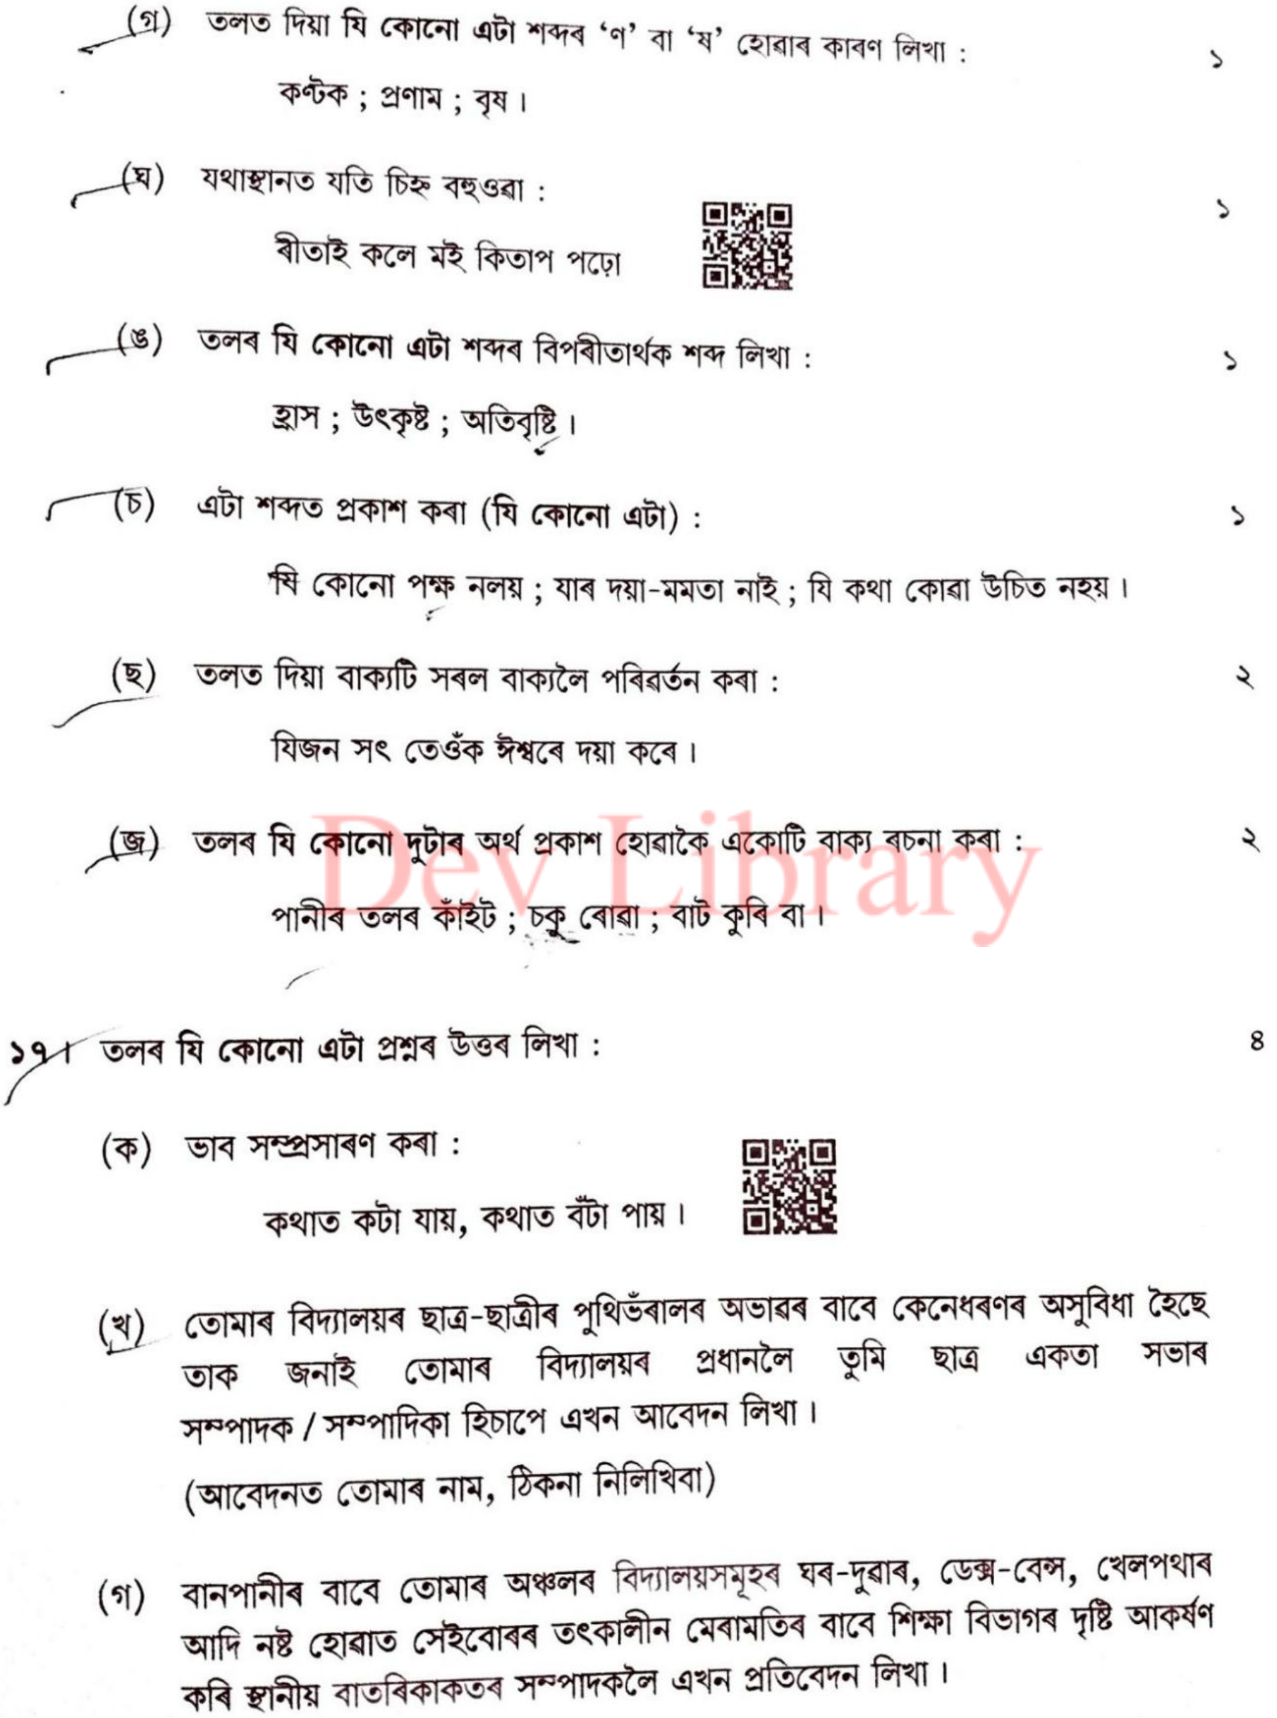 (গ) তলত দিয়া যি কোনো এটা শব্দৰ ‘ণ’ বা ‘ষ’ হোৱাৰ কাৰণ লিখা : ১
কণ্টক ; প্ৰণাম ; বৃষ ।
(ঘ) যথাস্থানত যতি চিহ্ন বহুওৱা : ১
ৰীতাই কলে মই কিতাপ পঢ়ো
(ঙ) তলৰ যি কোনো এটা শব্দৰ বিপৰীতাৰ্থক শব্দ লিখা : ১
হ্ৰাস ; উৎকৃষ্ট ; অতিবৃষ্টি ।
(চ) এটা শব্দত প্ৰকাশ কৰা (যি কোনো এটা) : ১
যি কোনো পক্ষ নলয় ; যাৰ দয়া-মমতা নাই ; যি কথা কোৱা উচিত নহয় ।
(ছ) তলত দিয়া বাক্যটি সৰল বাক্যলৈ পৰিৱৰ্তন কৰা : ২
যিজন সৎ তেওঁক ঈশ্বৰে দয়া কৰে ।
(জ) তলৰ যি কোনো দুটাৰ অৰ্থ প্ৰকাশ হোৱাকৈ একোটি বাক্য ৰচনা কৰা : ২
Dev Library
পানীৰ তলৰ কাঁইট ; চকু ৰোৱা ; বাট কুৰি বা ।
১৭। তলৰ যি কোনো এটা প্ৰশ্নৰ উত্তৰ লিখা : ৪
(ক) ভাব সম্প্ৰসাৰণ কৰা :
কথাত কটা যায়, কথাত বঁটা পায় ।
(খ) তোমাৰ বিদ্যালয়ৰ ছাত্ৰ-ছাত্ৰীৰ পুথিভঁৰালৰ অভাৱৰ বাবে কেনেধৰণৰ অসুবিধা হৈছে
তাক জনাই তোমাৰ বিদ্যালয়ৰ প্ৰধানলৈ তুমি ছাত্ৰ একতা সভাৰ
সম্পাদক / সম্পাদিকা হিচাপে এখন আবেদন লিখা ।
(আবেদনত তোমাৰ নাম, ঠিকনা নিলিখিবা)
(গ) বানপানীৰ বাবে তোমাৰ অঞ্চলৰ বিদ্যালয়সমূহৰ ঘৰ-দুৱাৰ, ডেক্স-বেন্স, খেলপথাৰ
আদি নষ্ট হোৱাত সেইবোৰৰ তৎকালীন মেৰামতিৰ বাবে শিক্ষা বিভাগৰ দৃষ্টি আকৰ্ষণ
কৰি স্থানীয় বাতৰিকাকতৰ সম্পাদকলৈ এখন প্ৰতিবেদন লিখা ।